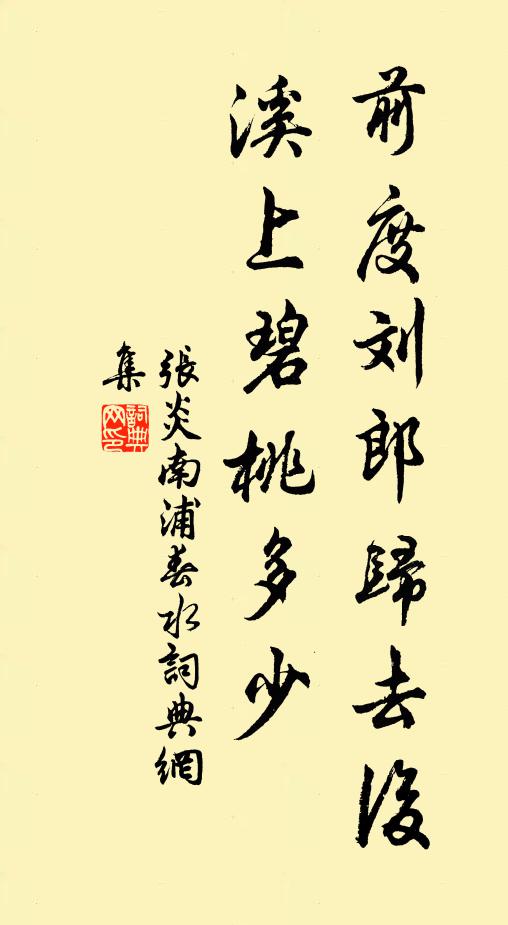 前度刘郎歸去後
溪上碧桃多少
張炎南浦春水詞典網
集
詞典
网印